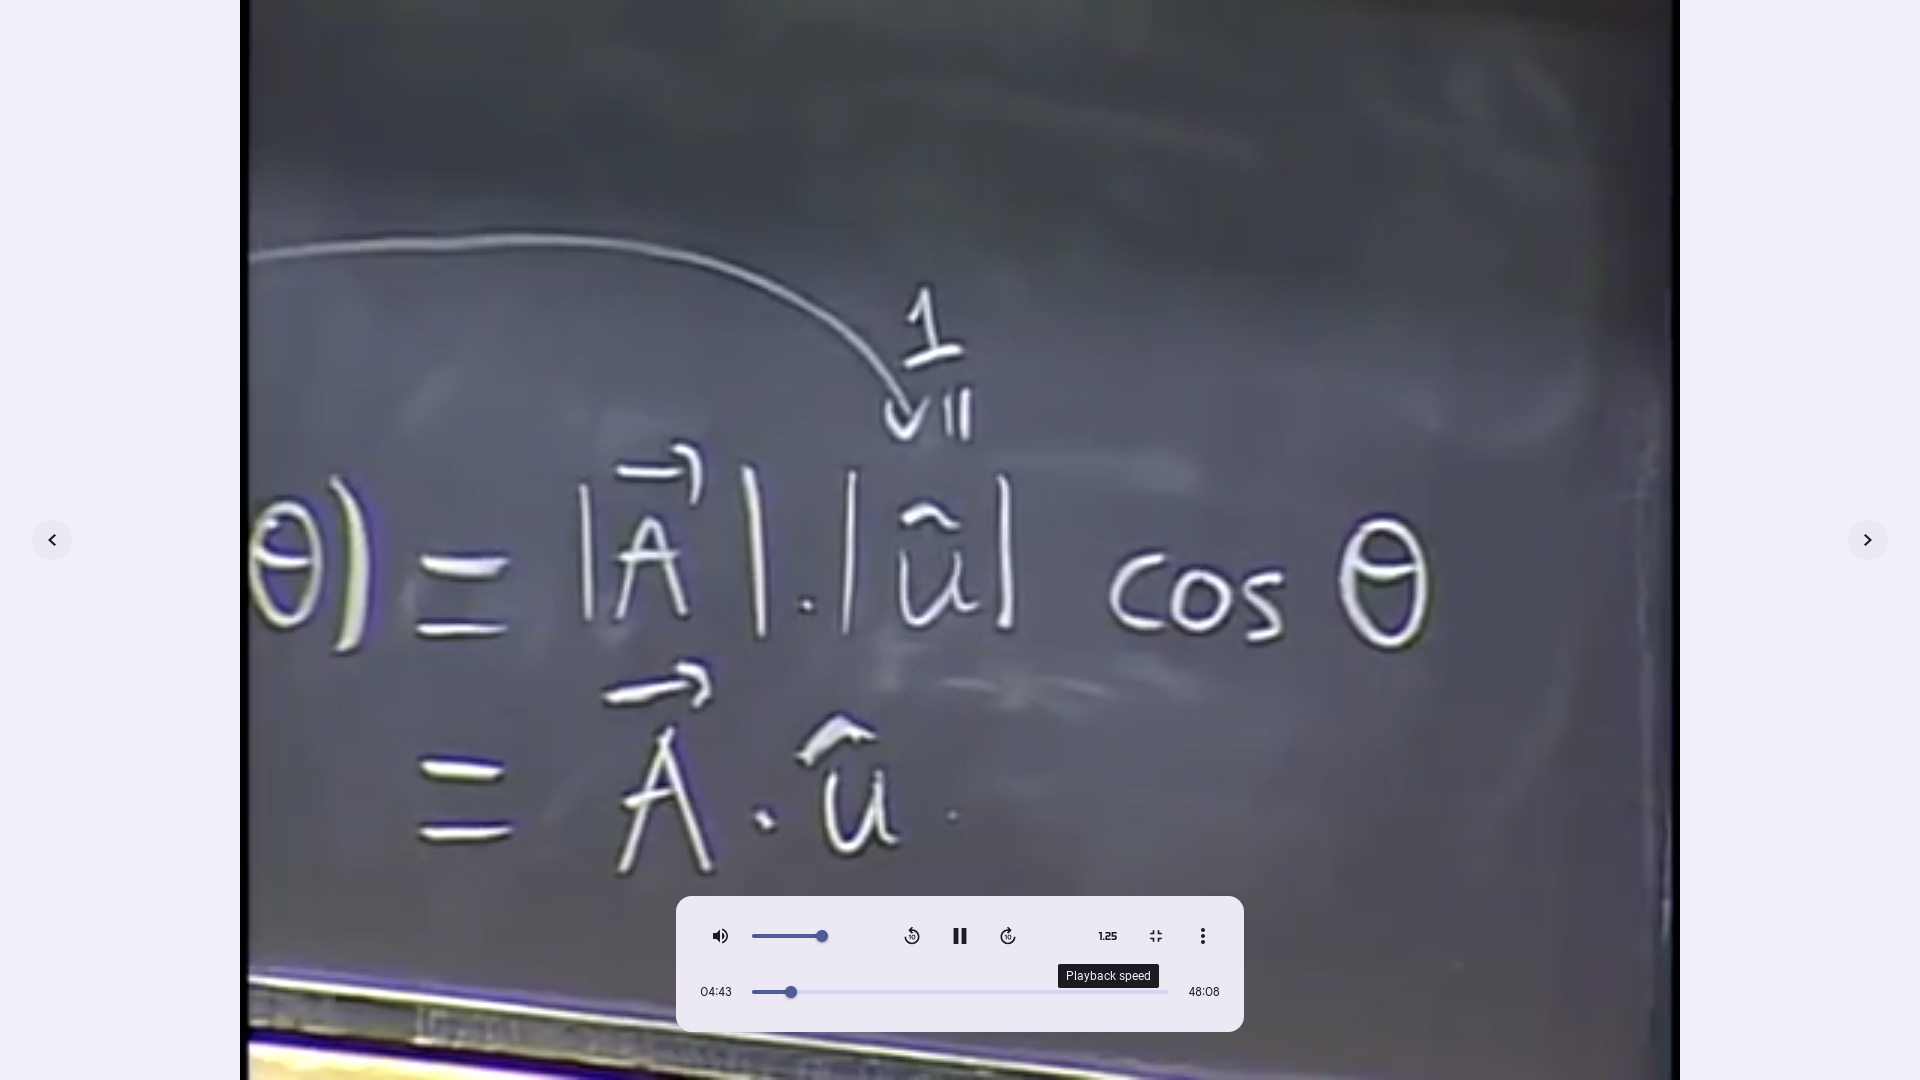 1
||
θ) = |A⃗| . |û| cos θ
= A⃗ . û .
10 10 1.25
Playback speed
04:43 48:08